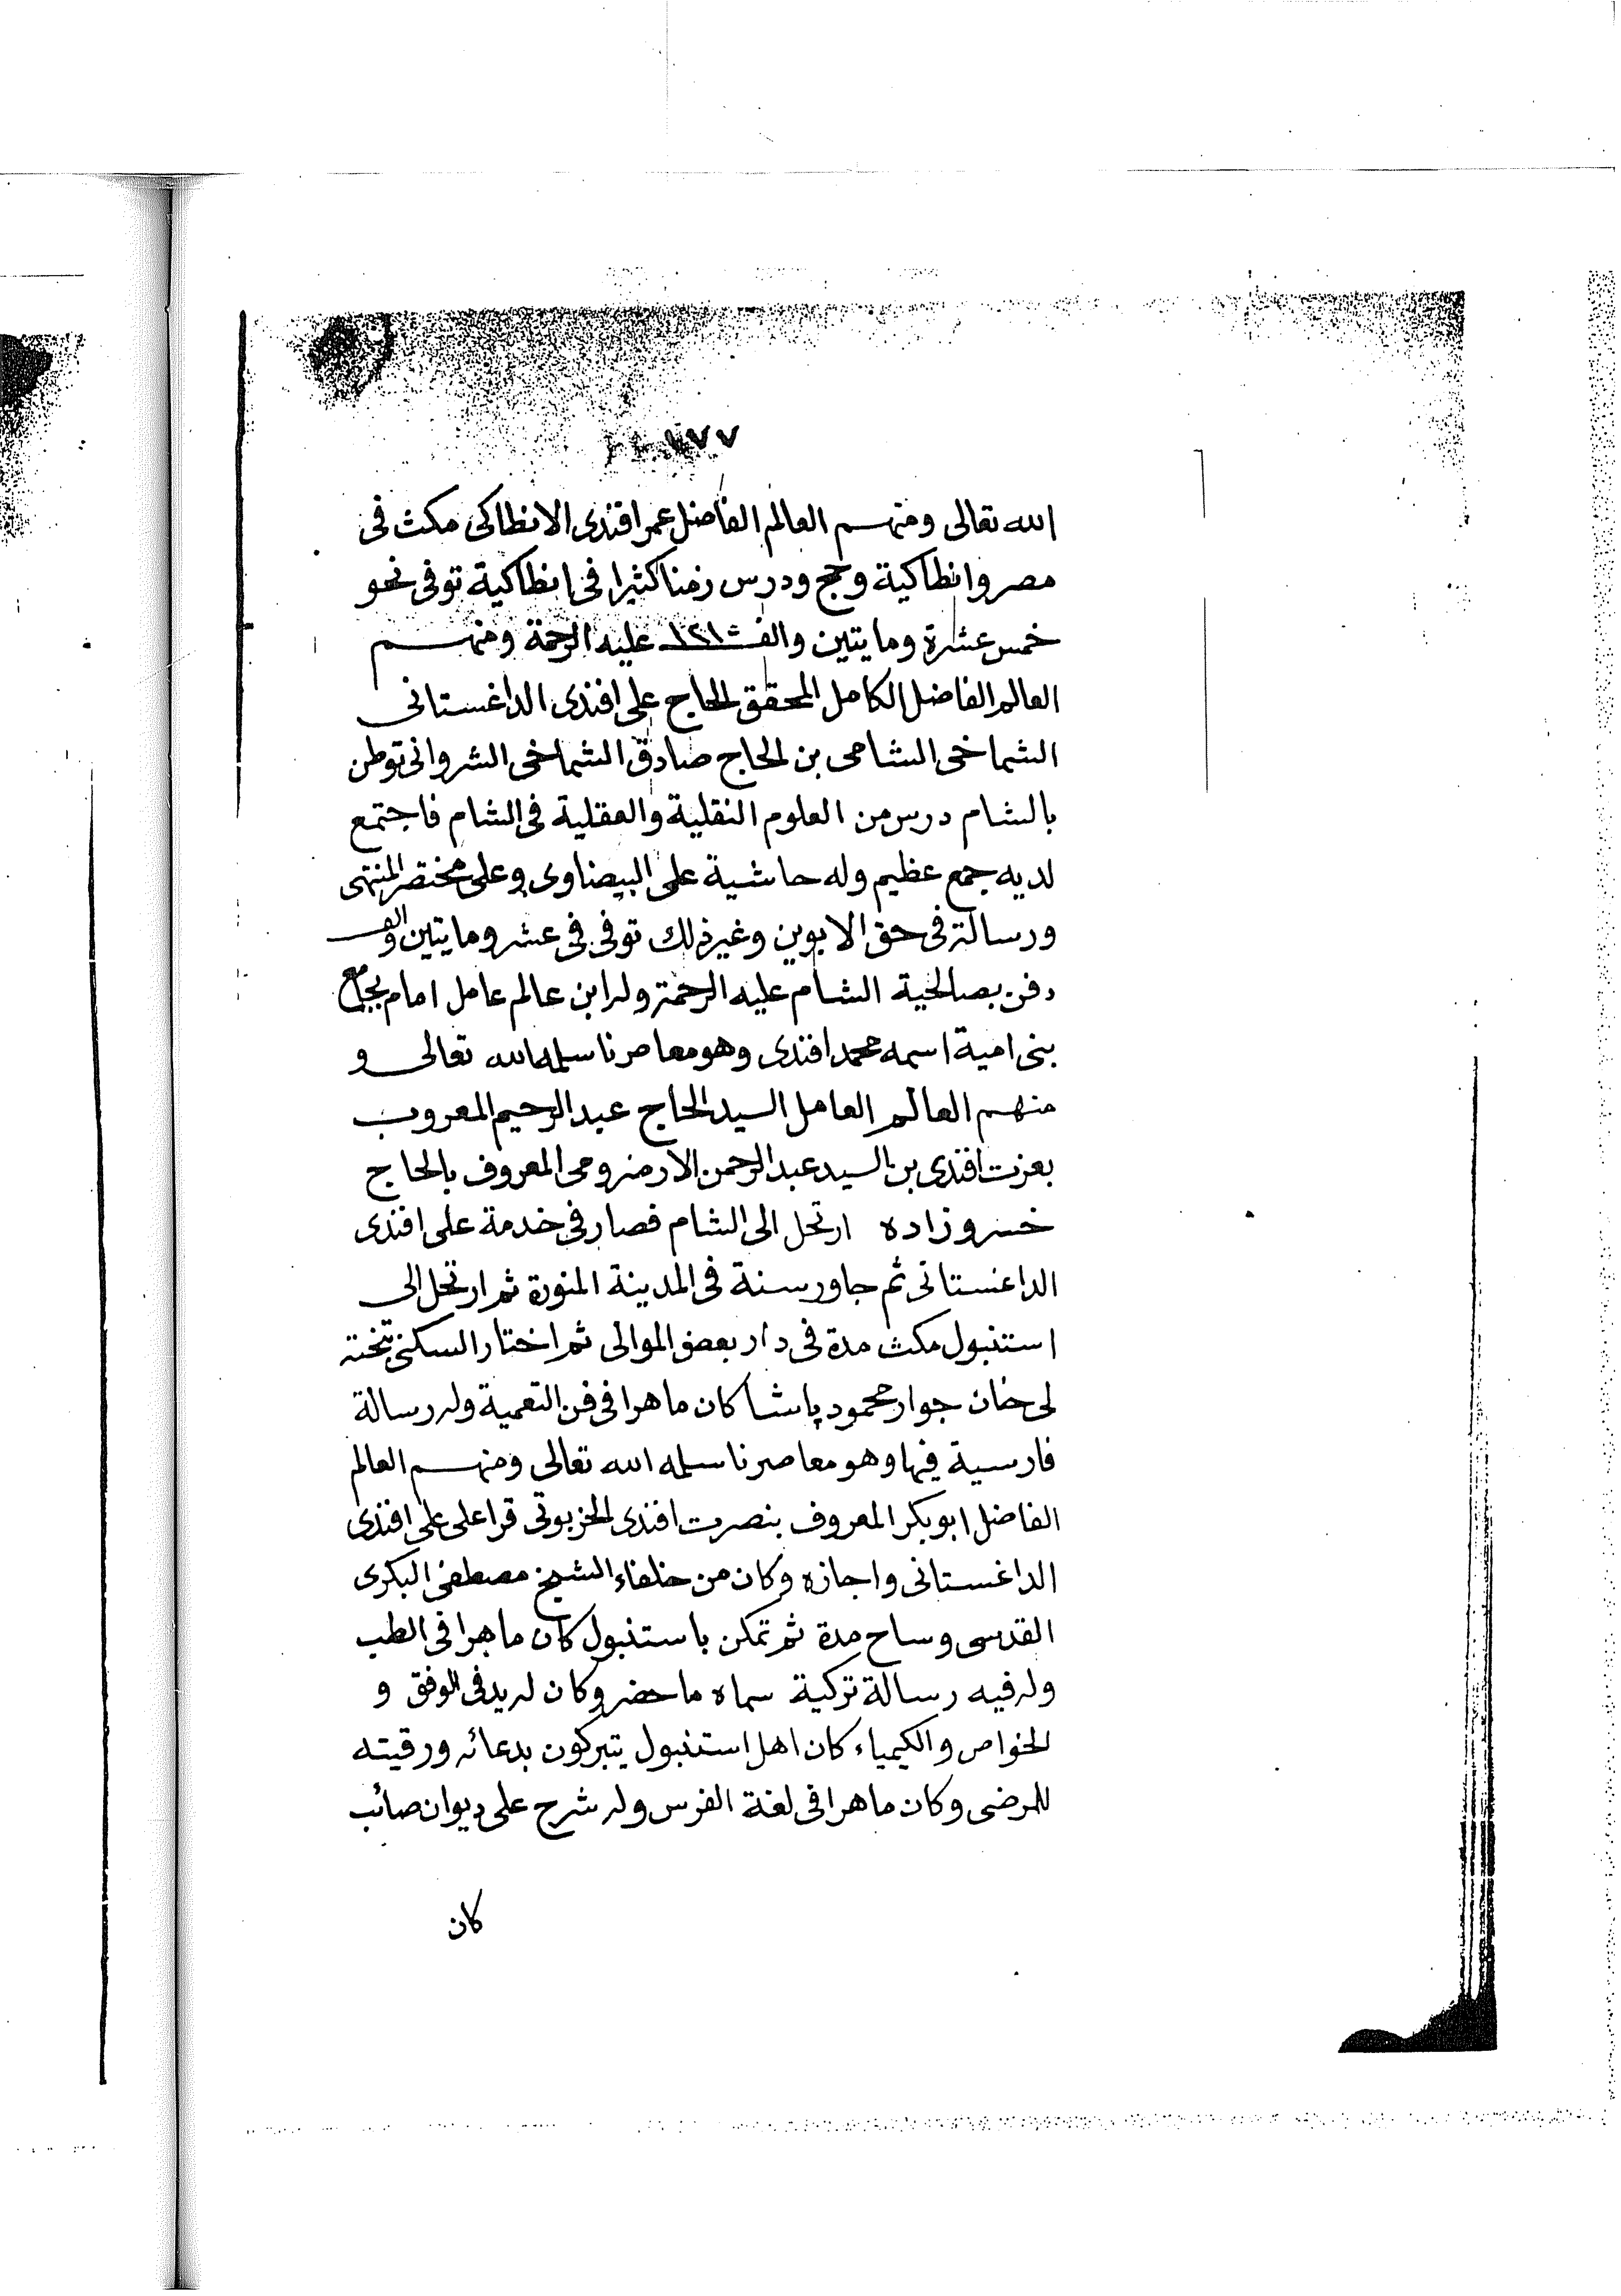 ١٧٧
الله تعالى ومنهم العالم الفاضل عمر افندى الانطاكى مكث فى
مصر وانطاكية وحج ودرس زمنا كثيرا فى انطاكية توفى نحو
خمس عشرة ومايتين والف عليه الرحمة ومنهم
العالم الفاضل الكامل المحقق الحاج على افندى الداغستانى
الشماخى الشامى بن الحاج صادق الشماخى الشروانى توطن
بالشام درس من العلوم النقلية والعقلية فى الشام فاجتمع
لديه جمع عظيم وله حاشية على البيضاوى وعلى مختصر المنتهى
ورسالة فى حق الابوين وغير ذلك توفى فى عشر ومايتين والف
دفن بصالحية الشام عليه الرحمة وله ابن عالم عامل امام بجامع
بنى امية اسمه محمد افندى وهو معاصرنا سلمه الله تعالى و
منهم العالم العامل السيد الحاج عبد الرحيم المعروب
بعزت افندى بن السيد عبد الرحمن الارضرومى المعروف بالحاج
خسرو زاده ارتحل الى الشام فصار فى خدمة على افندى
الداغستانى ثم جاور سنة فى المدينة المنورة ثم ارتحل الى
استنبول مكث مدة فى دار بعض الموالى ثم اختار السكنى بتخته
لى خان جوار محمود پاشا كان ماهرا فى فن التعمية وله رسالة
فارسية فيها وهو معاصرنا سلمه الله تعالى ومنهم العالم
الفاضل ابوبكر المعروف بنصرت افندى الخربوتى قرا على على افندى
الداغستانى واجازه وكان من خلفاء الشيخ مصطفى البكرى
القدسى وساح مدة ثم تمكن باستنبول كان ماهرا فى الطب
وله فيه رسالة تركية سماه ما حضر وكان له يد فى الوفق و
الخواص والكيمياء كان اهل استنبول يتبركون بدعائه ورقيته
للمرضى وكان ماهرا فى لغة الفرس وله شرح على ديوان صائب
كان